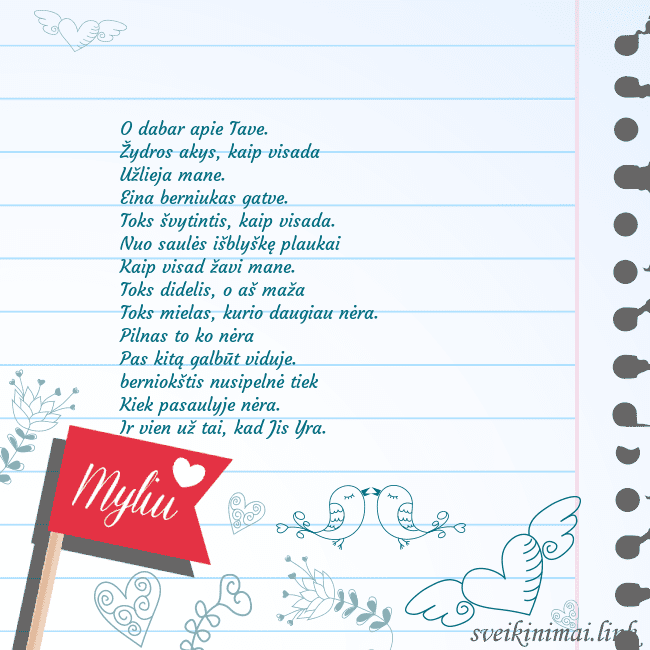 O dabar apie Tave.
Žydros akys, kaip visada
Užlieja mane.
Eina berniukas gatve.
Toks švytintis, kaip visada.
Nuo saulės išblyškę plaukai
Kaip visad žavi mane.
Toks didelis, o aš maža
Toks mielas, kurio daugiau nėra.
Pilnas to ko nėra
Pas kitą galbūt viduje.
berniokštis nusipelnė tiek
Kiek pasaulyje nėra.
Ir vien už tai, kad Jis Yra.
Myliu
sveikinimai.link